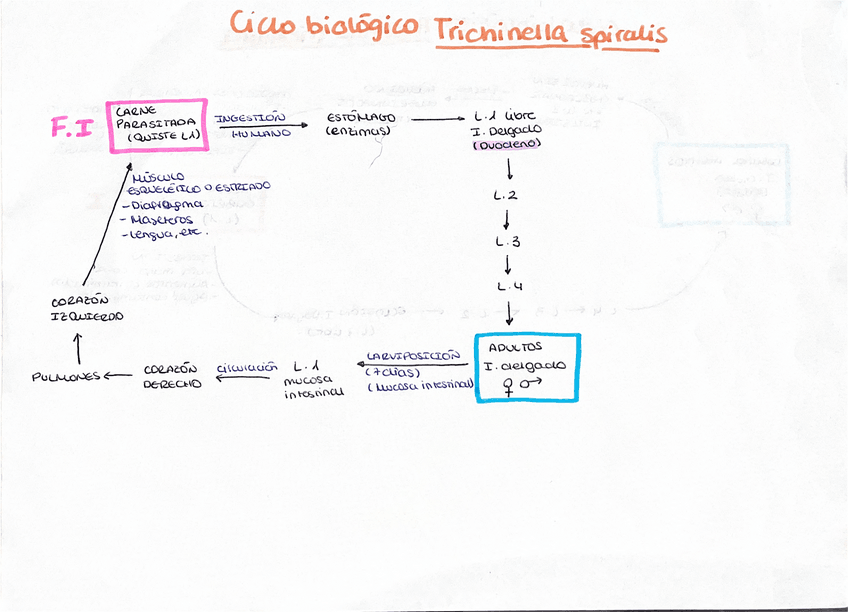 Ciclo biológico Trichinella spiralis
F.I
CARNE
PARASITADA
(QUISTE L1)
INGESTIÓN
HUMANO
ESTÓMAGO
(enzimas)
L.1 libre
I. Delgado
(Duodeno)
L.2
L.3
L.4
ADULTOS
I. delgado
♀ ♂
LARVIPOSICIÓN
(7 días)
(Mucosa intestinal)
L.1
mucosa
intestinal
circulación
CORAZÓN
DERECHO
PULMONES
CORAZÓN
IZQUIERDO
MÚSCULO
ESQUELÉTICO O ESTRIADO
- Diafragma
- Maseteros
- Lengua, etc.